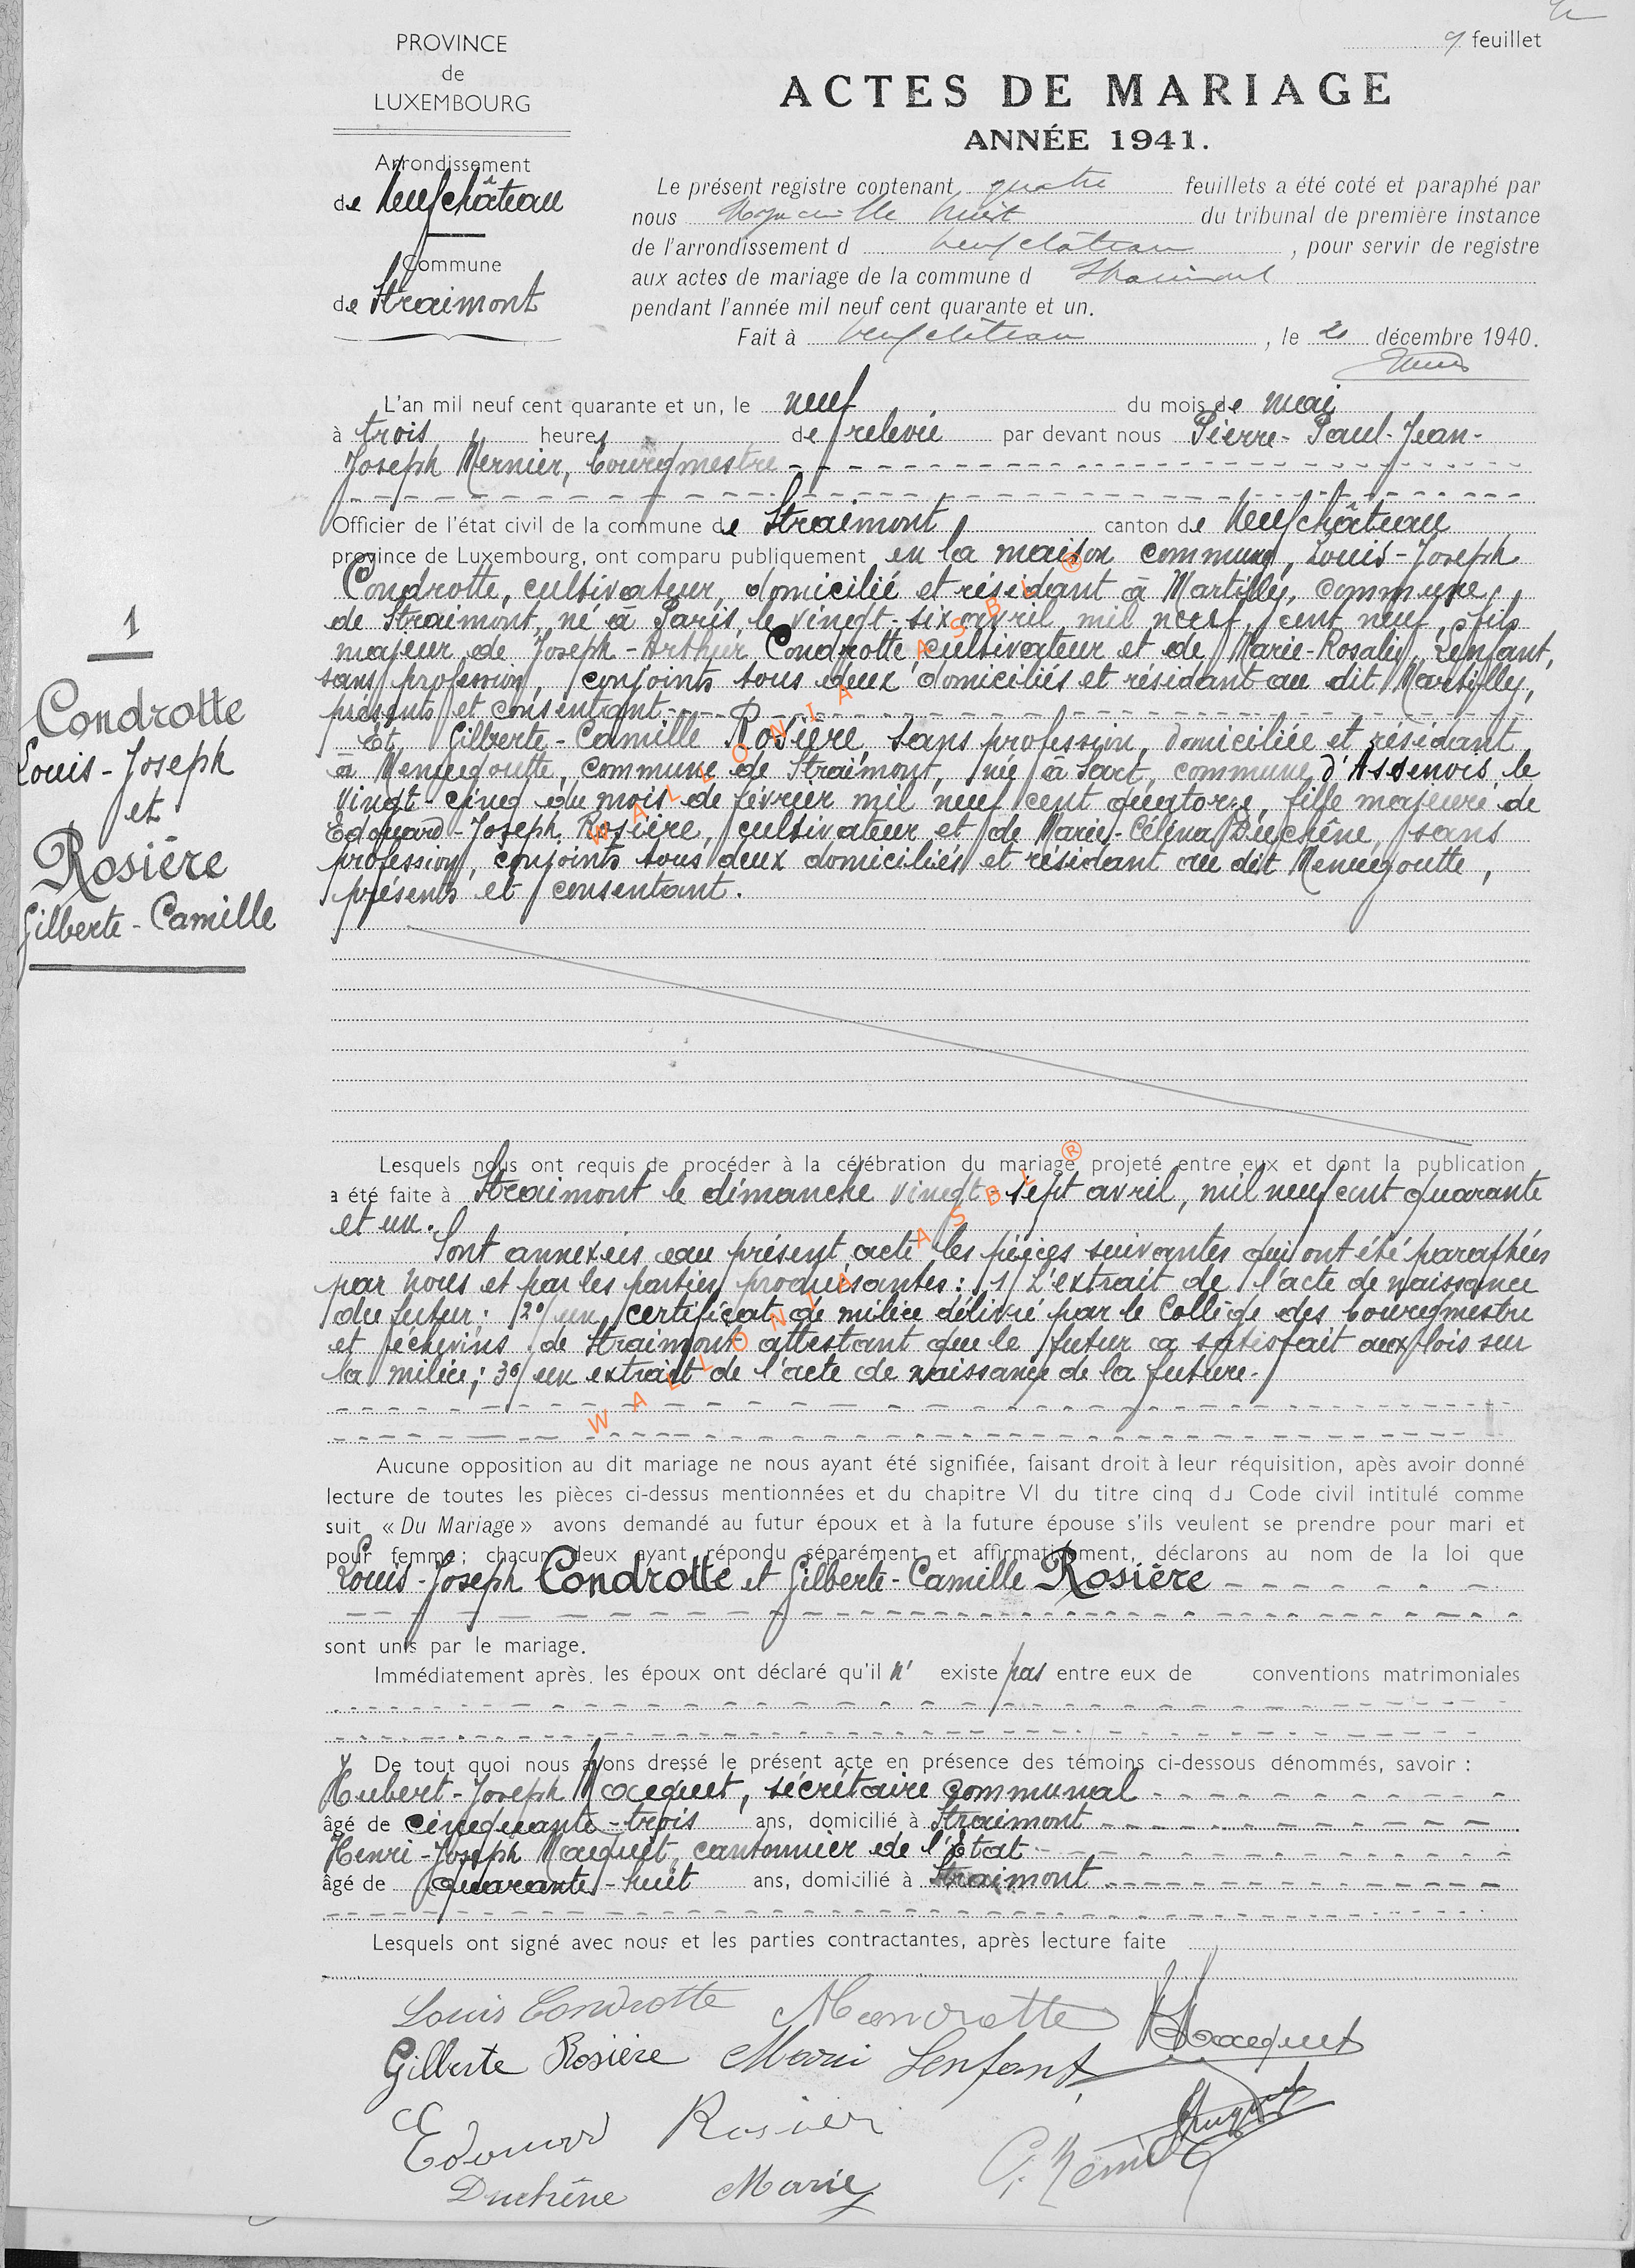 PROVINCE
de
LUXEMBOURG
feuillet
ACTES DE MARIAGE
ANNÉE 1941.
Arrondissement
de Neufchâteau
Commune
de Straimont
Le présent registre contenant quatre feuillets a été coté et paraphé par
nous du tribunal de première instance
de l'arrondissement d Neufchâteau , pour servir de registre
aux actes de mariage de la commune d Straimont
pendant l'année mil neuf cent quarante et un.
Fait à Neufchâteau , le décembre 1940.
L'an mil neuf cent quarante et un, le neuf du mois de mai
à trois heures de relevée par devant nous Pierre-Paul-Jean-
Joseph Mernier, bourgmestre
Officier de l'état civil de la commune de Straimont, canton de Neufchâteau
province de Luxembourg, ont comparu publiquement en la maison commune, Louis-Joseph
Condrotte, cultivateur, domicilié et résidant à Martilly, commune
de Straimont, né à Paris, le vingt-six avril mil neuf cent neuf, fils
majeur de Joseph-Arthur Condrotte, cultivateur et de Marie-Rosalie Lenfant,
sans profession, conjoints tous deux domiciliés et résidant au dit Martilly,
présents et consentant
Et Gilberte-Camille Rosière, sans profession, domiciliée et résidant
à Menugoutte, commune de Straimont, née à Sart, commune d'Assenois le
vingt-cinq du mois de février mil neuf cent quatorze, fille majeure de
Edouard-Joseph Rosière, cultivateur et de Marie-Célina Duchêne, sans
profession, conjoints tous deux domiciliés et résidant au dit Menugoutte,
présents et consentant.
1
Condrotte
Louis-Joseph
et
Rosière
Gilberte-Camille
Lesquels nous ont requis de procéder à la célébration du mariage projeté entre eux et dont la publication
a été faite à Straimont le dimanche vingt-sept avril, mil neuf cent quarante
et un.
Sont annexées au présent acte les pièces suivantes qui ont été paraphées
par nous et par les parties produisantes: 1/ L'extrait de l'acte de naissance
du futur; 2°/ un certificat de milice délivré par le Collège des bourgmestre
et échevins de Straimont attestant que le futur a satisfait aux lois sur
la milice; 3°/ un extrait de l'acte de naissance de la future.
Aucune opposition au dit mariage ne nous ayant été signifiée, faisant droit à leur réquisition, apès avoir donné
lecture de toutes les pièces ci-dessus mentionnées et du chapitre VI du titre cinq du Code civil intitulé comme
suit «Du Mariage» avons demandé au futur époux et à la future épouse s'ils veulent se prendre pour mari et
pour femme; chacun deux ayant répondu séparément et affirmativement, déclarons au nom de la loi que
Louis-Joseph Condrotte et Gilberte-Camille Rosière
sont unis par le mariage.
Immédiatement après, les époux ont déclaré qu'il n' existe pas entre eux de conventions matrimoniales
De tout quoi nous avons dressé le présent acte en présence des témoins ci-dessous dénommés, savoir :
Hubert-Joseph Macquet, sécrétaire communal
âgé de cinquante-trois ans, domicilié à Straimont
Henri-Joseph Maquet, cantonnier de l'Etat
âgé de quarante-huit ans, domicilié à Straimont
Lesquels ont signé avec nous et les parties contractantes, après lecture faite
Louis Condrotte
Gilberte Rosière Marie Lenfant
Macquet
Edouard Rosière
Duchêne Marie
WALLONIA ASBL ®
WALLONIA ASBL ®